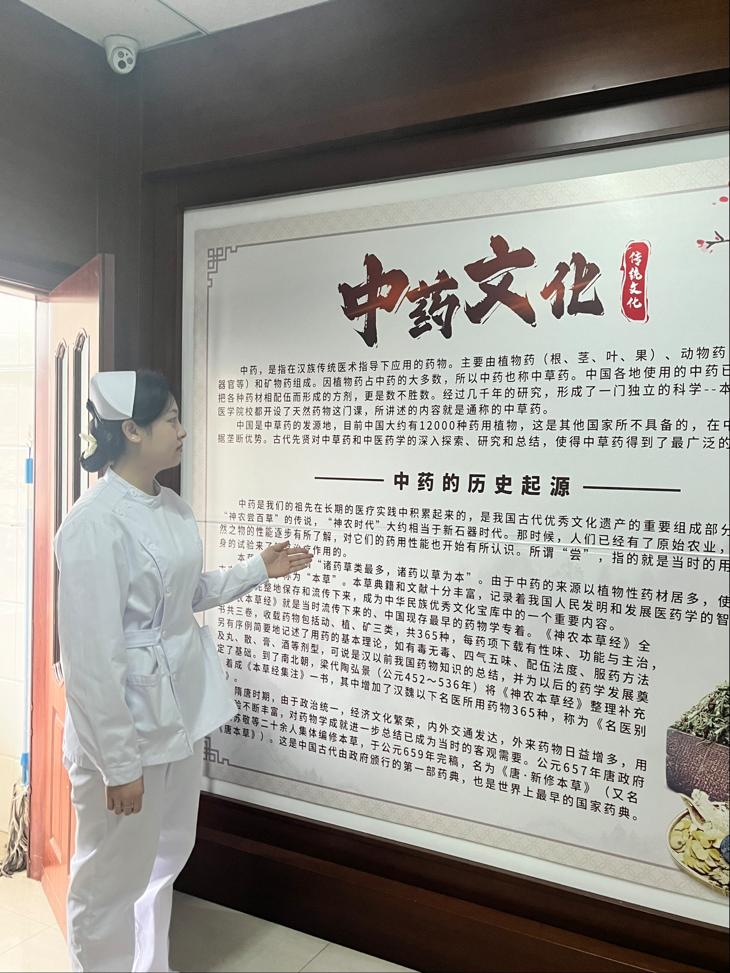 中药文化
传统文化
中药，是指在汉族传统医术指导下应用的药物。主要由植物药（根、茎、叶、果）、动物药
器官等）和矿物药组成。因植物药占中药的大多数，所以中药也称中草药。中国各地使用的中药已
把各种药材相配伍而形成的方剂，更是数不胜数。经过几千年的研究，形成了一门独立的科学--本
医学院校都开设了天然药物这门课，所讲述的内容就是通称的中草药。
中国是中草药的发源地，目前中国大约有12000种药用植物，这是其他国家所不具备的，在中
据垄断优势。古代先贤对中草药和中医药学的深入探索、研究和总结，使得中草药得到了最广泛的
中药的历史起源
中药是我们的祖先在长期的医疗实践中积累起来的，是我国古代优秀文化遗产的重要组成部分
“神农尝百草”的传说，“神农时代”大约相当于新石器时代。那时候，人们已经有了原始农业，
然之物的性能逐步有所了解，对它们的药用性能也开始有所认识。所谓“尝”，指的就是当时的用
身的试验来了 作用的。
“诸药草类最多，诸药以草为本”。由于中药的来源以植物性药材居多，使
称为“本草”。本草典籍和文献十分丰富，记录着我国人民发明和发展医药学的智
完整地保存和流传下来，成为中华民族优秀文化宝库中的一个重要内容。
农本草经》就是当时流传下来的、中国现存最早的药物学专着。《神农本草经》全
书共三卷，收载药物包括动、植、矿三类，共365种，每药项下载有性味、功能与主治，
另有序例简要地记述了用药的基本理论，如有毒无毒、四气五味、配伍法度、服药方法
及丸、散、膏、酒等剂型，可说是汉以前我国药物知识的总结，并为以后的药学发展奠
定了基础。到了南北朝，梁代陶弘景（公元452～536年）将《神农本草经》整理补充
着成《本草经集注》一书，其中增加了汉魏以下名医所用药物365种，称为《名医别
》。
隋唐时期，由于政治统一，经济文化繁荣，内外交通发达，外来药物日益增多，用
验不断丰富，对药物学成就进一步总结已成为当时的客观需要。公元657年唐政府
苏敬等二十余人集体编修本草，于公元659年完稿，名为《唐·新修本草》（又名
《唐本草》）。这是中国古代由政府颁行的第一部药典，也是世界上最早的国家药典。